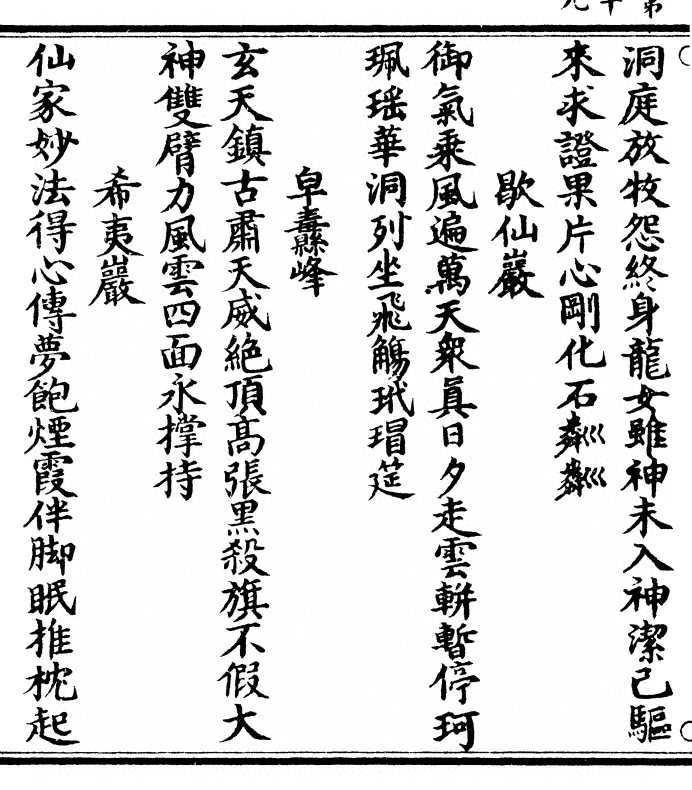 洞庭放牧怨終身龍女雖神未入神潔己驅
來求證果片心剛化石粼粼
歇仙巖
御氣乘風遍萬天衆眞日夕走雲軿暫停珂
珮瑶華洞列坐飛觴玳瑁筵
皁纛峰
玄天鎮古肅天威絶頂髙張黑殺旗不假大
神雙臂力風雲四面永撑持
希夷巖
仙家妙法得心傳夢飽煙霞伴脚眠推枕起